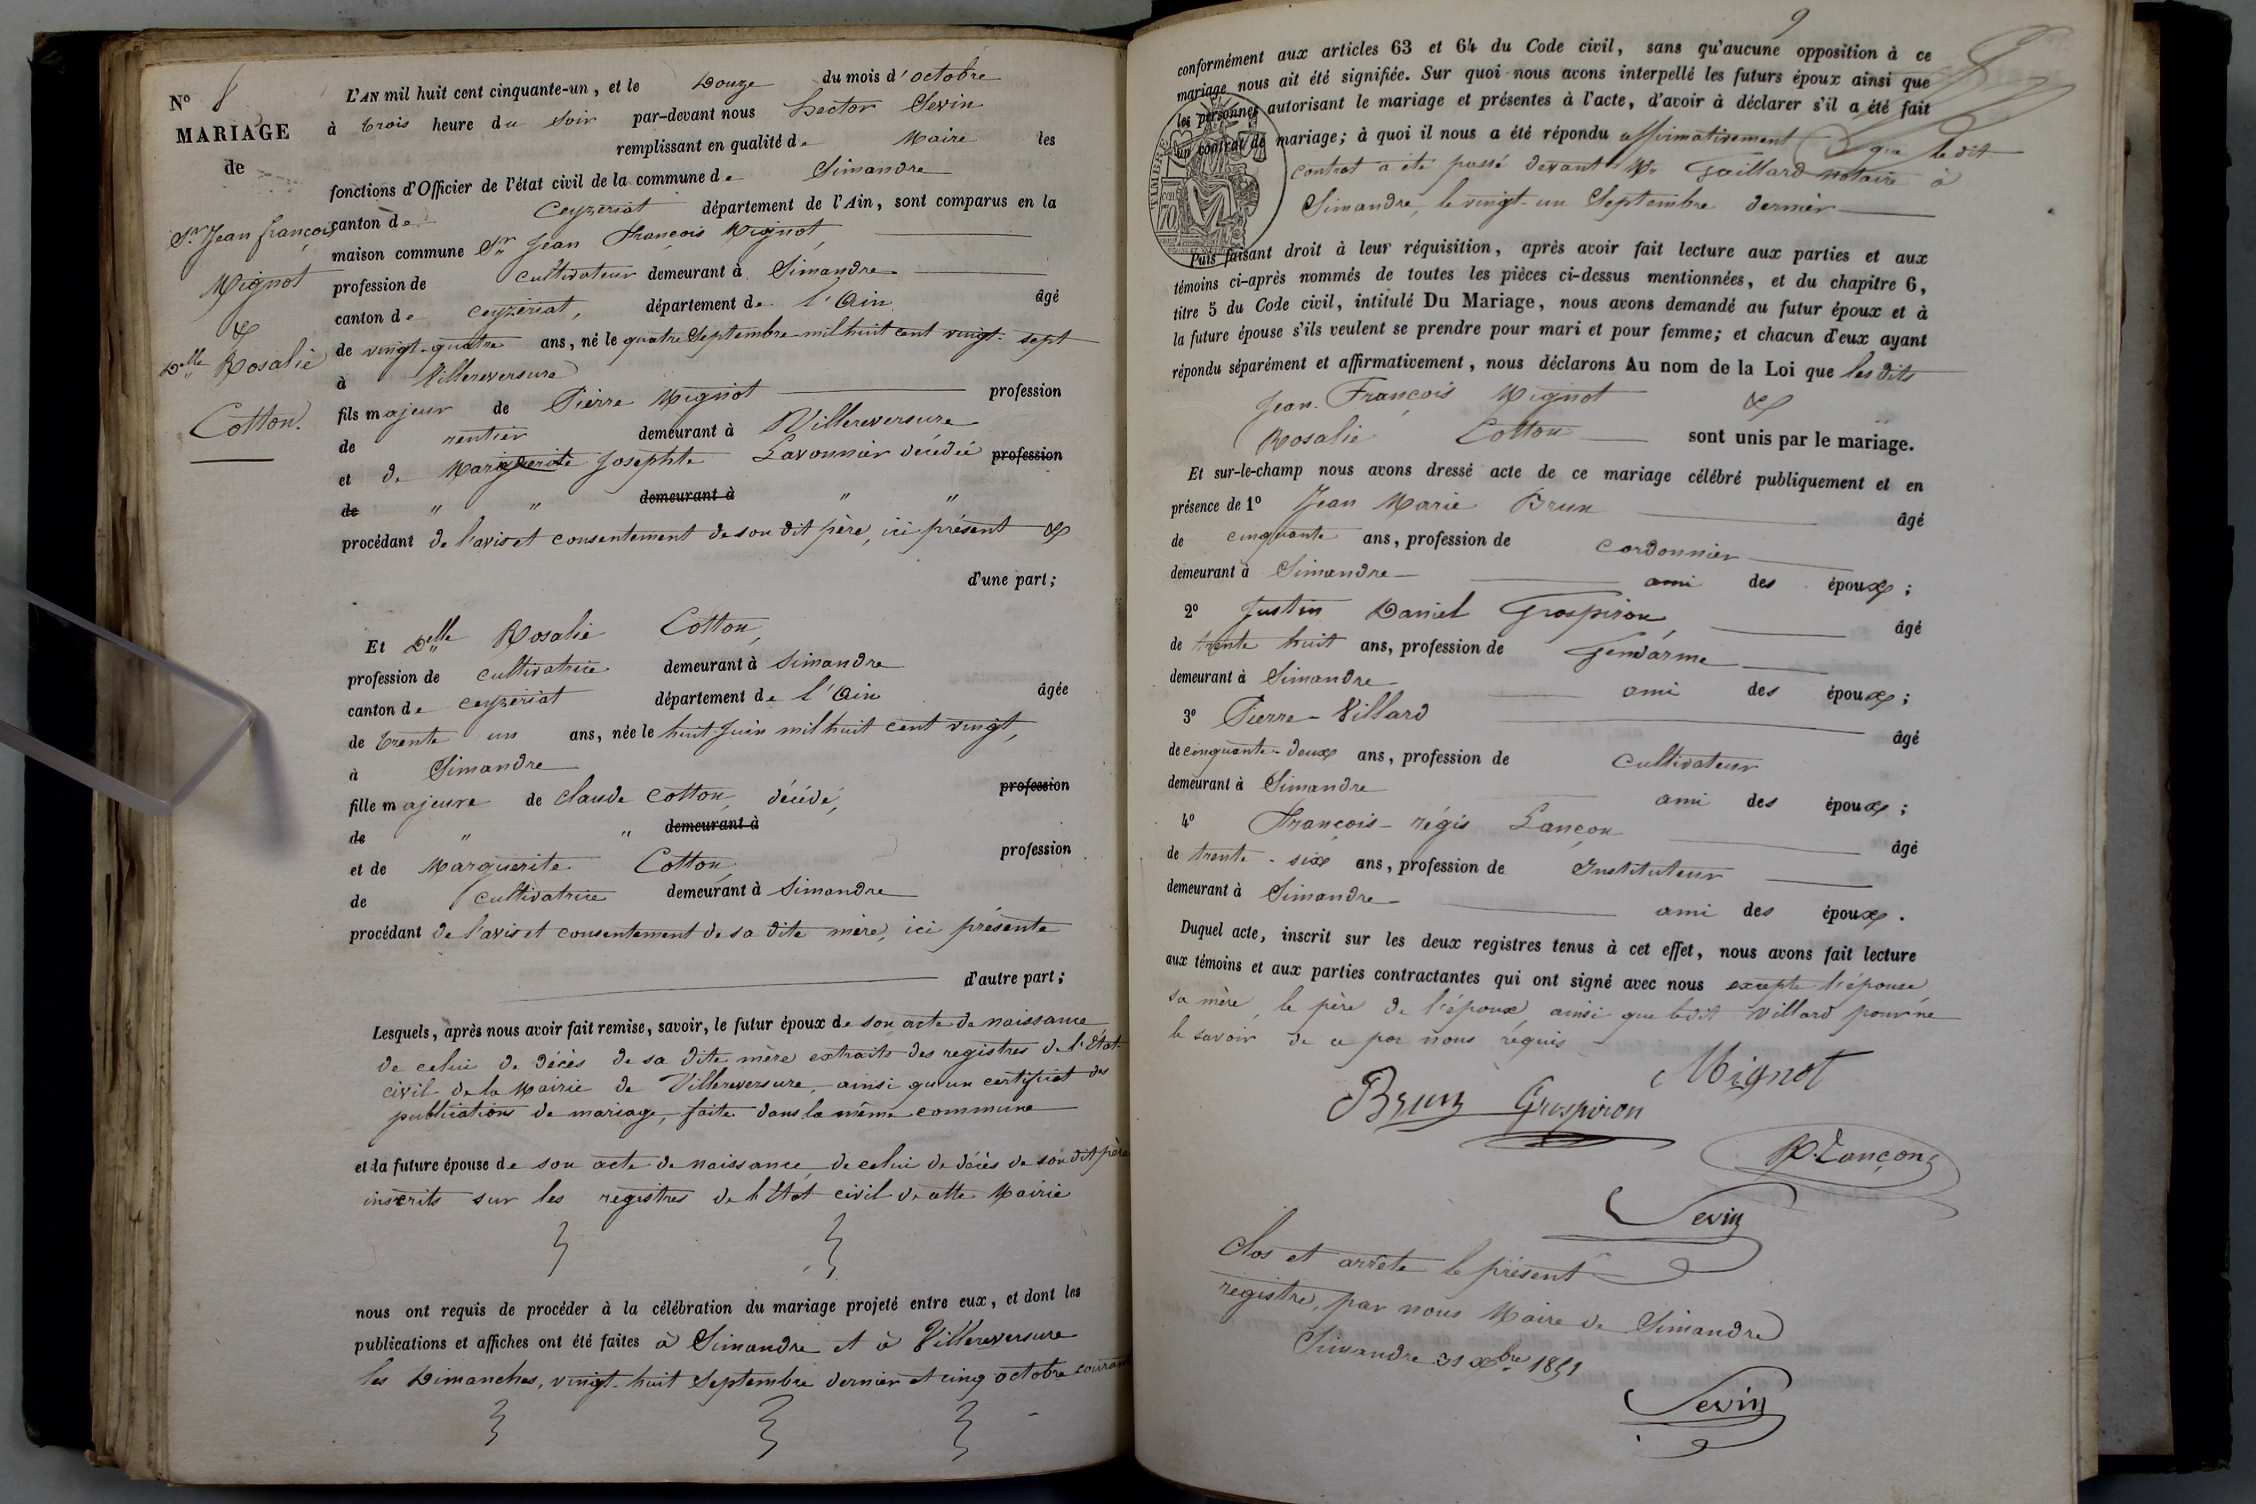 N° 8
MARIAGE
de
Sr Jean françois
Mignot
&
Delle Rosalie
Cotton.
L'AN mil huit cent cinquante-un, et le Douze du mois d'octobre
à trois heure du soir par-devant nous hector Sevin
remplissant en qualité de Maire les
fonctions d'Officier de l'état civil de la commune de Simandre
canton de Ceyzeriat département de l'Ain, sont comparus en la
maison commune Sr Jean François Mignot,
profession de cultivateur demeurant à Simandre
canton de ceyzeriat, département de l'Ain âgé
de vingt-quatre ans, né le quatre Septembre mil huit cent vingt-sept
à Villereversure
fils majeur de Pierre Mignot profession
de rentier demeurant à Villereversure
et de Marguerite Josephte Lavonnier décédée profession
de " " demeurant à " "
procédant de l'avis et consentement de son dit père, ici présent &
d'une part;
Et Delle Rosalie Cotton,
profession de cultivatrice demeurant à Simandre
canton de ceyzeriat département de l'Ain âgée
de trente un ans, née le huit Juin mil huit cent vingt,
à Simandre
fille majeure de Claude Cotton, décédé, profession
de " " demeurant à
et de Marguerite Cotton, profession
de cultivatrice demeurant à Simandre
procédant de l'avis et consentement de sa dite mère, ici présente
d'autre part;
Lesquels, après nous avoir fait remise, savoir, le futur époux de son acte de naissance
de celui de décès de sa dite mère extraits des registres de l'État
civil de la Mairie de Villereversure, ainsi qu'un certificat des
publications de mariage, faite dans la même commune
et la future épouse de son acte de naissance, de celui de décès de son dit père
inscrits sur les registres de l'État civil de cette Mairie
nous ont requis de procéder à la célébration du mariage projeté entre eux, et dont les
publications et affiches ont été faites à Simandre et à Villereversure
les Dimanches, vingt-huit Septembre dernier et cinq octobre courant
9
conformément aux articles 63 et 64 du Code civil, sans qu'aucune opposition à ce
mariage nous ait été signifiée. Sur quoi nous avons interpellé les futurs époux ainsi que
les personnes autorisant le mariage et présentes à l'acte, d'avoir à déclarer s'il a été fait
un contrat de mariage; à quoi il nous a été répondu affirmativement & que le dit
contrat a été passé devant Me Gaillard notaire à
Simandre, le vingt-un Septembre dernier
TIMBRE
70
Puis faisant droit à leur réquisition, après avoir fait lecture aux parties et aux
témoins ci-après nommés de toutes les pièces ci-dessus mentionnées, et du chapitre 6,
titre 5 du Code civil, intitulé Du Mariage, nous avons demandé au futur époux et à
la future épouse s'ils veulent se prendre pour mari et pour femme; et chacun d'eux ayant
répondu séparément et affirmativement, nous déclarons Au nom de la Loi que les dits
Jean François Mignot &
Rosalie Cotton sont unis par le mariage.
Et sur-le-champ nous avons dressé acte de ce mariage célébré publiquement et en
présence de 1° Jean Marie Brun âgé
de cinquante ans, profession de cordonnier
demeurant à Simandre ami des époux;
2° Justin Daniel Grospiron, âgé
de trente huit ans, profession de Gendarme
demeurant à Simandre ami des époux;
3° Pierre Villard âgé
de cinquante-deux ans, profession de cultivateur
demeurant à Simandre ami des époux;
4° François-régis Lançon âgé
de trente-six ans, profession de Instituteur
demeurant à Simandre ami des époux.
Duquel acte, inscrit sur les deux registres tenus à cet effet, nous avons fait lecture
aux témoins et aux parties contractantes qui ont signé avec nous excepté l'épouse
sa mère, le père de l'époux ainsi que ledit Villard pour ne
le savoir de ce par nous requis
Mignot
Brun Grospiron
R. Lançon
Sevin
Clos et arrêté le présent
registre, par nous Maire de Simandre
Simandre 31 Xbre 1851
Sevin